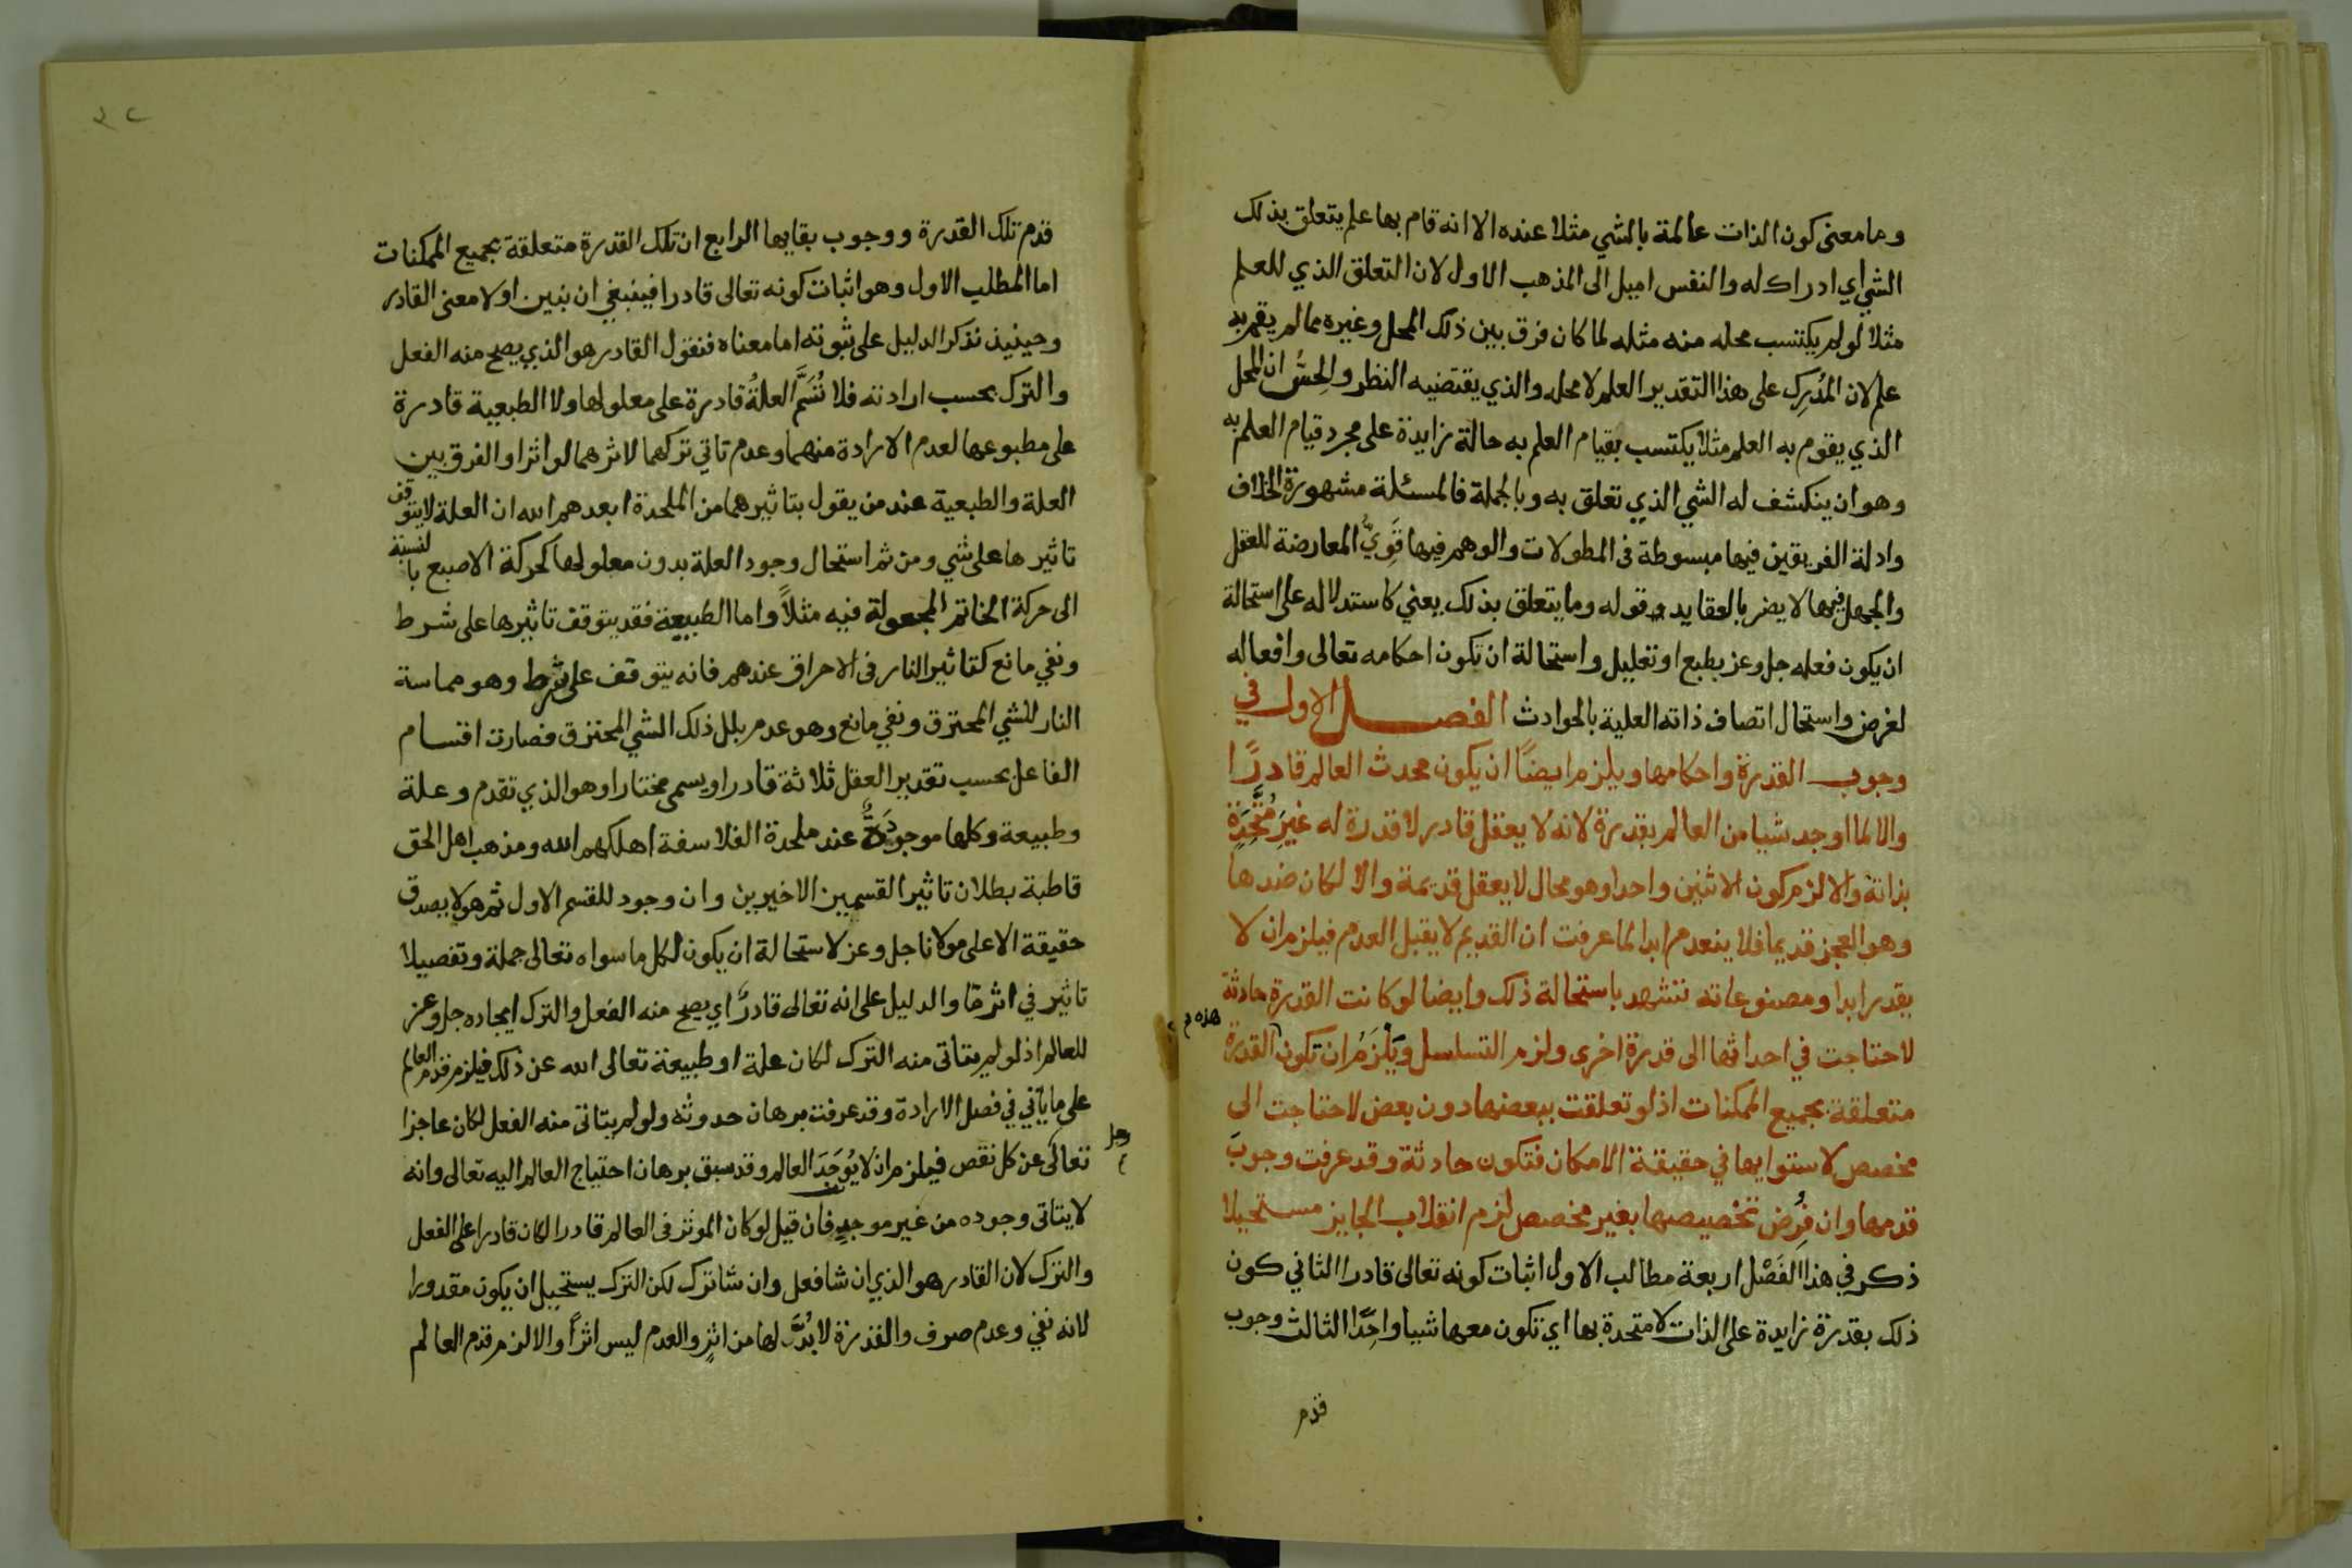 وما معنى كون الذات عالمة بالشي مثلا عنده الا انه قام بها علم يتعلق بذلك
الشي اي ادراك له والنفس اميل الى المذهب الاول لان التعلق الذي للعلم
مثلا لو لم يكتسب محله منه مثله لما كان فرق بين ذلك المحل وغيره مما لم يقم به
علم لان المُدرِك على هذا التقدير العلم لا محله والذي يقتضيه النظر والحِسّ ان المحل
الذي يقوم به العلم مثلا يكتسب بقيام العلم به حالة زايدة على مجرد قيام العلم به
وهو ان ينكشف له الشي الذي تعلق به وبالجملة فالمسئلة مشهورة الخلاف
وادلة الفريقين فيها مبسوطة في المطولات والوهم فيها قَوِيُّ المعارضة للعقل
والجهل فيها لا يضر بالعقايد قوله وما يتعلق بذلك يعني كاستدلاله على استحالة
ان يكون فعله جل وعز بطبع او تعليل واستحالة ان تكون احكامه تعالى وافعاله
لغرض واستحال اتصاف ذاته العلية بالحوادث الفصل الاول في
وجوب القدرة واحكامها ويلزم ايضًا ان يكون محدث العالم قادرًا
والا لما اوجد شيا من العالم بقدرة لانه لا يعقل قادر لا قدرة له غيرَ مُتَّحِدَة
بذاته والا لزم كون الاثنين واحدا وهو محال لا يعقل قديمة والا لكان ضدها
وهو العجز قديما فلا ينعدم ابدا لما عرفت ان القديم لا يقبل العدم فيلزم ان لا
يقدر ابدا ومصنوعاته تشهد باستحالة ذلك وايضا لو كانت القدرة حادثة
لاحتاجت في احداثها الى قدرة اخرى ولزم التسلسل ويَلْزَمُ ان تكون القدرة
هذه
متعلقة بجميع الممكنات اذ لو تعلقت ببعضها دون بعض لاحتاجت الى
مخصص لاستوايها في حقيقة الامكان فتكون حادثة وقد عرفت وجوبَ
قدمها وان فُرِض تخصيصها بغير مخصص لزم انقلاب الجايز مستحيلا
ذكر في هذا الفَصْل اربعة مطالب الاول اثبات كونه تعالى قادرا الثاني كون
ذلك بقدرة زايدة على الذات لا متحدة بها اي تكون معها شيا واحِدًا الثالث وجوب
قدم
قدم تلك القدرة ووجوب بقايها الرابع ان تلك القدرة متعلقة بجميع الممكنات
اما المطلب الاول وهو اثبات كونه تعالى قادرا فينبغي ان نبين اولا معنى القادر
وحينيذ نذكر الدليل على ثبوته اما معناه فنقول القادر هو الذي يصح منه الفعل
والترك بحسب ارادته فلا تُسَمَّ العلةُ قادرة على معلولها ولا الطبعية قادرة
على مطبوعها لعدم الارادة منهما وعدم تاتي تركهما لاثرهما لو اثرا والفرق بين
العلة والطبعية عند من يقول بتاثيرهما من الملحدة ابعدهم الله ان العلة لا يتوقف
تاثيرها على شي ومن ثم استحال وجود العلة بدون معلولها كحركة الاصبع بالنسبة
الى حركة الخاتم المجعولة فيه مثلاً واما الطبيعة فقد يتوقف تاثيرها على شرط
ونفي مانع كتاثير النار في الاحراق عندهم فانه يتوقف على شرط وهو مماسة
النار للشي المحترق ونفي مانع وهو عدم بلل ذلك الشي المحترق فصارت اقسام
الفاعل بحسب تقدير العقل ثلاثة قادرا ويسمى مختارا وهو الذي تقدم وعلة
وطبيعة وكلها موجودَةٌ عند ملحدة الفلاسفة اهلكهم الله ومذهب اهل الحق
قاطبة بطلان تاثير القسمين الاخيرين وان وجود للقسم الاول ثم هو لا يصدق
حقيقة الا على مولانا جل وعز لاستحالة ان يكون لكل ما سواه تعالى جملة وتفصيلا
تاثير في اثر مّا والدليل على انه تعالى قادرٌ اي يصح منه الفعل والترك ايجاده جل وعز
للعالم اذ لو لم يتاتى منه الترك لكان علة او طبيعة تعالى الله عن ذلك فيلزم قدم العالم
على ما ياتي في فصل الارادة وقد عرفت برهان حدوثه ولو لم يتاتى منه الفعل لكان عاجزا
تعالى عن كل نقص فيلزم ان لا يُوجَدَ العالم وقد سبق برهان احتياج العالم اليه تعالى وانه
لا يتاتى وجوده من غير موجدٍ فان قيل لو كان الموثر في العالم قادرا لكان قادرا على الفعل
والترك لان القادر هو الذي ان شا فعل وان شا ترك لكن الترك يستحيل ان يكون مقدورا
لانه نفي وعدم صرف والقدرة لا بُدَّ لها من اثرٍ والعدم ليس اثراً والا لزم قدم العالم